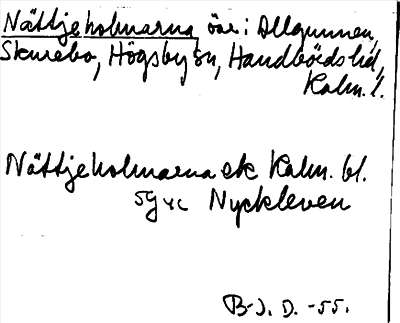 Nättjeholmarna öar i Allgunnen,
Skurebo, Högsby sn, Handbörds hd,
Kalm. l.
Nättjeholmarna ek Kalm. bl.
5g 4c Nyckleven
B-J. D. -55.